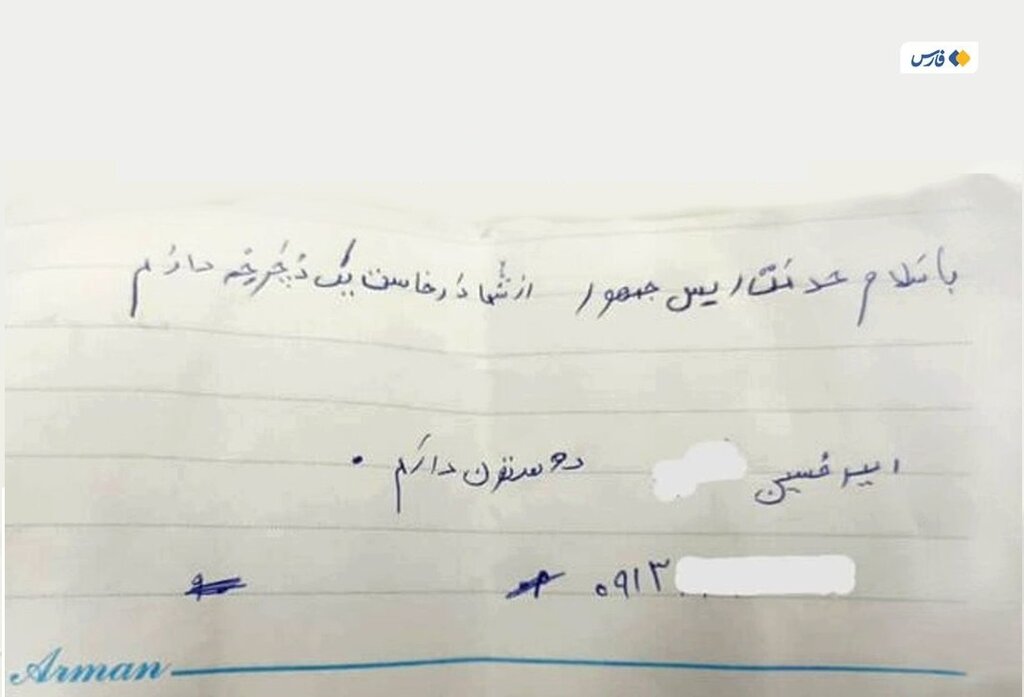 فارس
با سلام خدمت رییس جمهور از شما درخاست یک دچرخه دارم
امیر حسین دوستون دارم .
۰۹۱۳
Arman